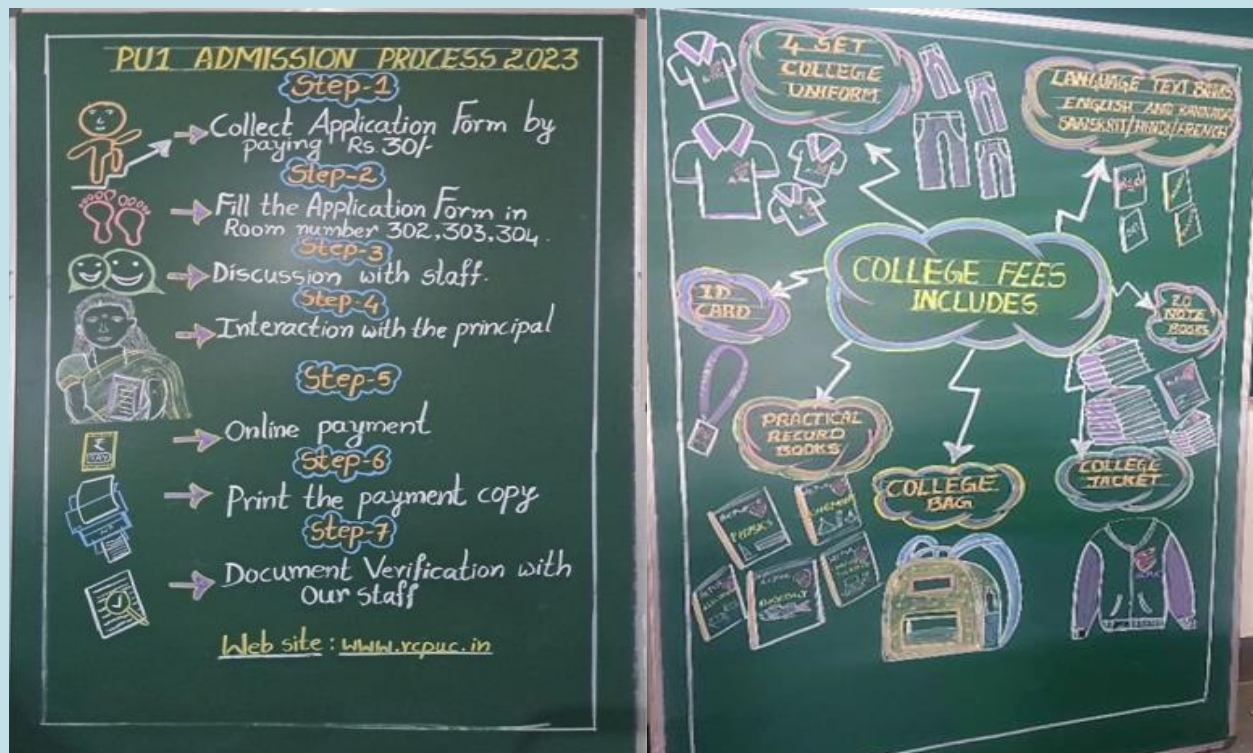 PU1 ADMISSION PROCESS 2023
Step-1
Collect Application Form by
paying Rs 30/-
Step-2
Fill the Application Form in
Room number 302,303,304.
Step-3
Discussion with staff.
Step-4
Interaction with the principal
Step-5
Online payment
PAY
Step-6
Print the payment copy
Step-7
Document Verification with
Our staff
Web site : www.rcpuc.in
4 SET
COLLEGE
UNIFORM
LANGUAGE TEXT BOOKS
ENGLISH AND KANNADA
SANSKRIT/HINDI/FRENCH
COLLEGE FEES
INCLUDES
ID
CARD
20
NOTE
BOOKS
PRACTICAL
RECORD
BOOKS
COLLEGE
BAG
COLLEGE
JACKET
PHYSICS